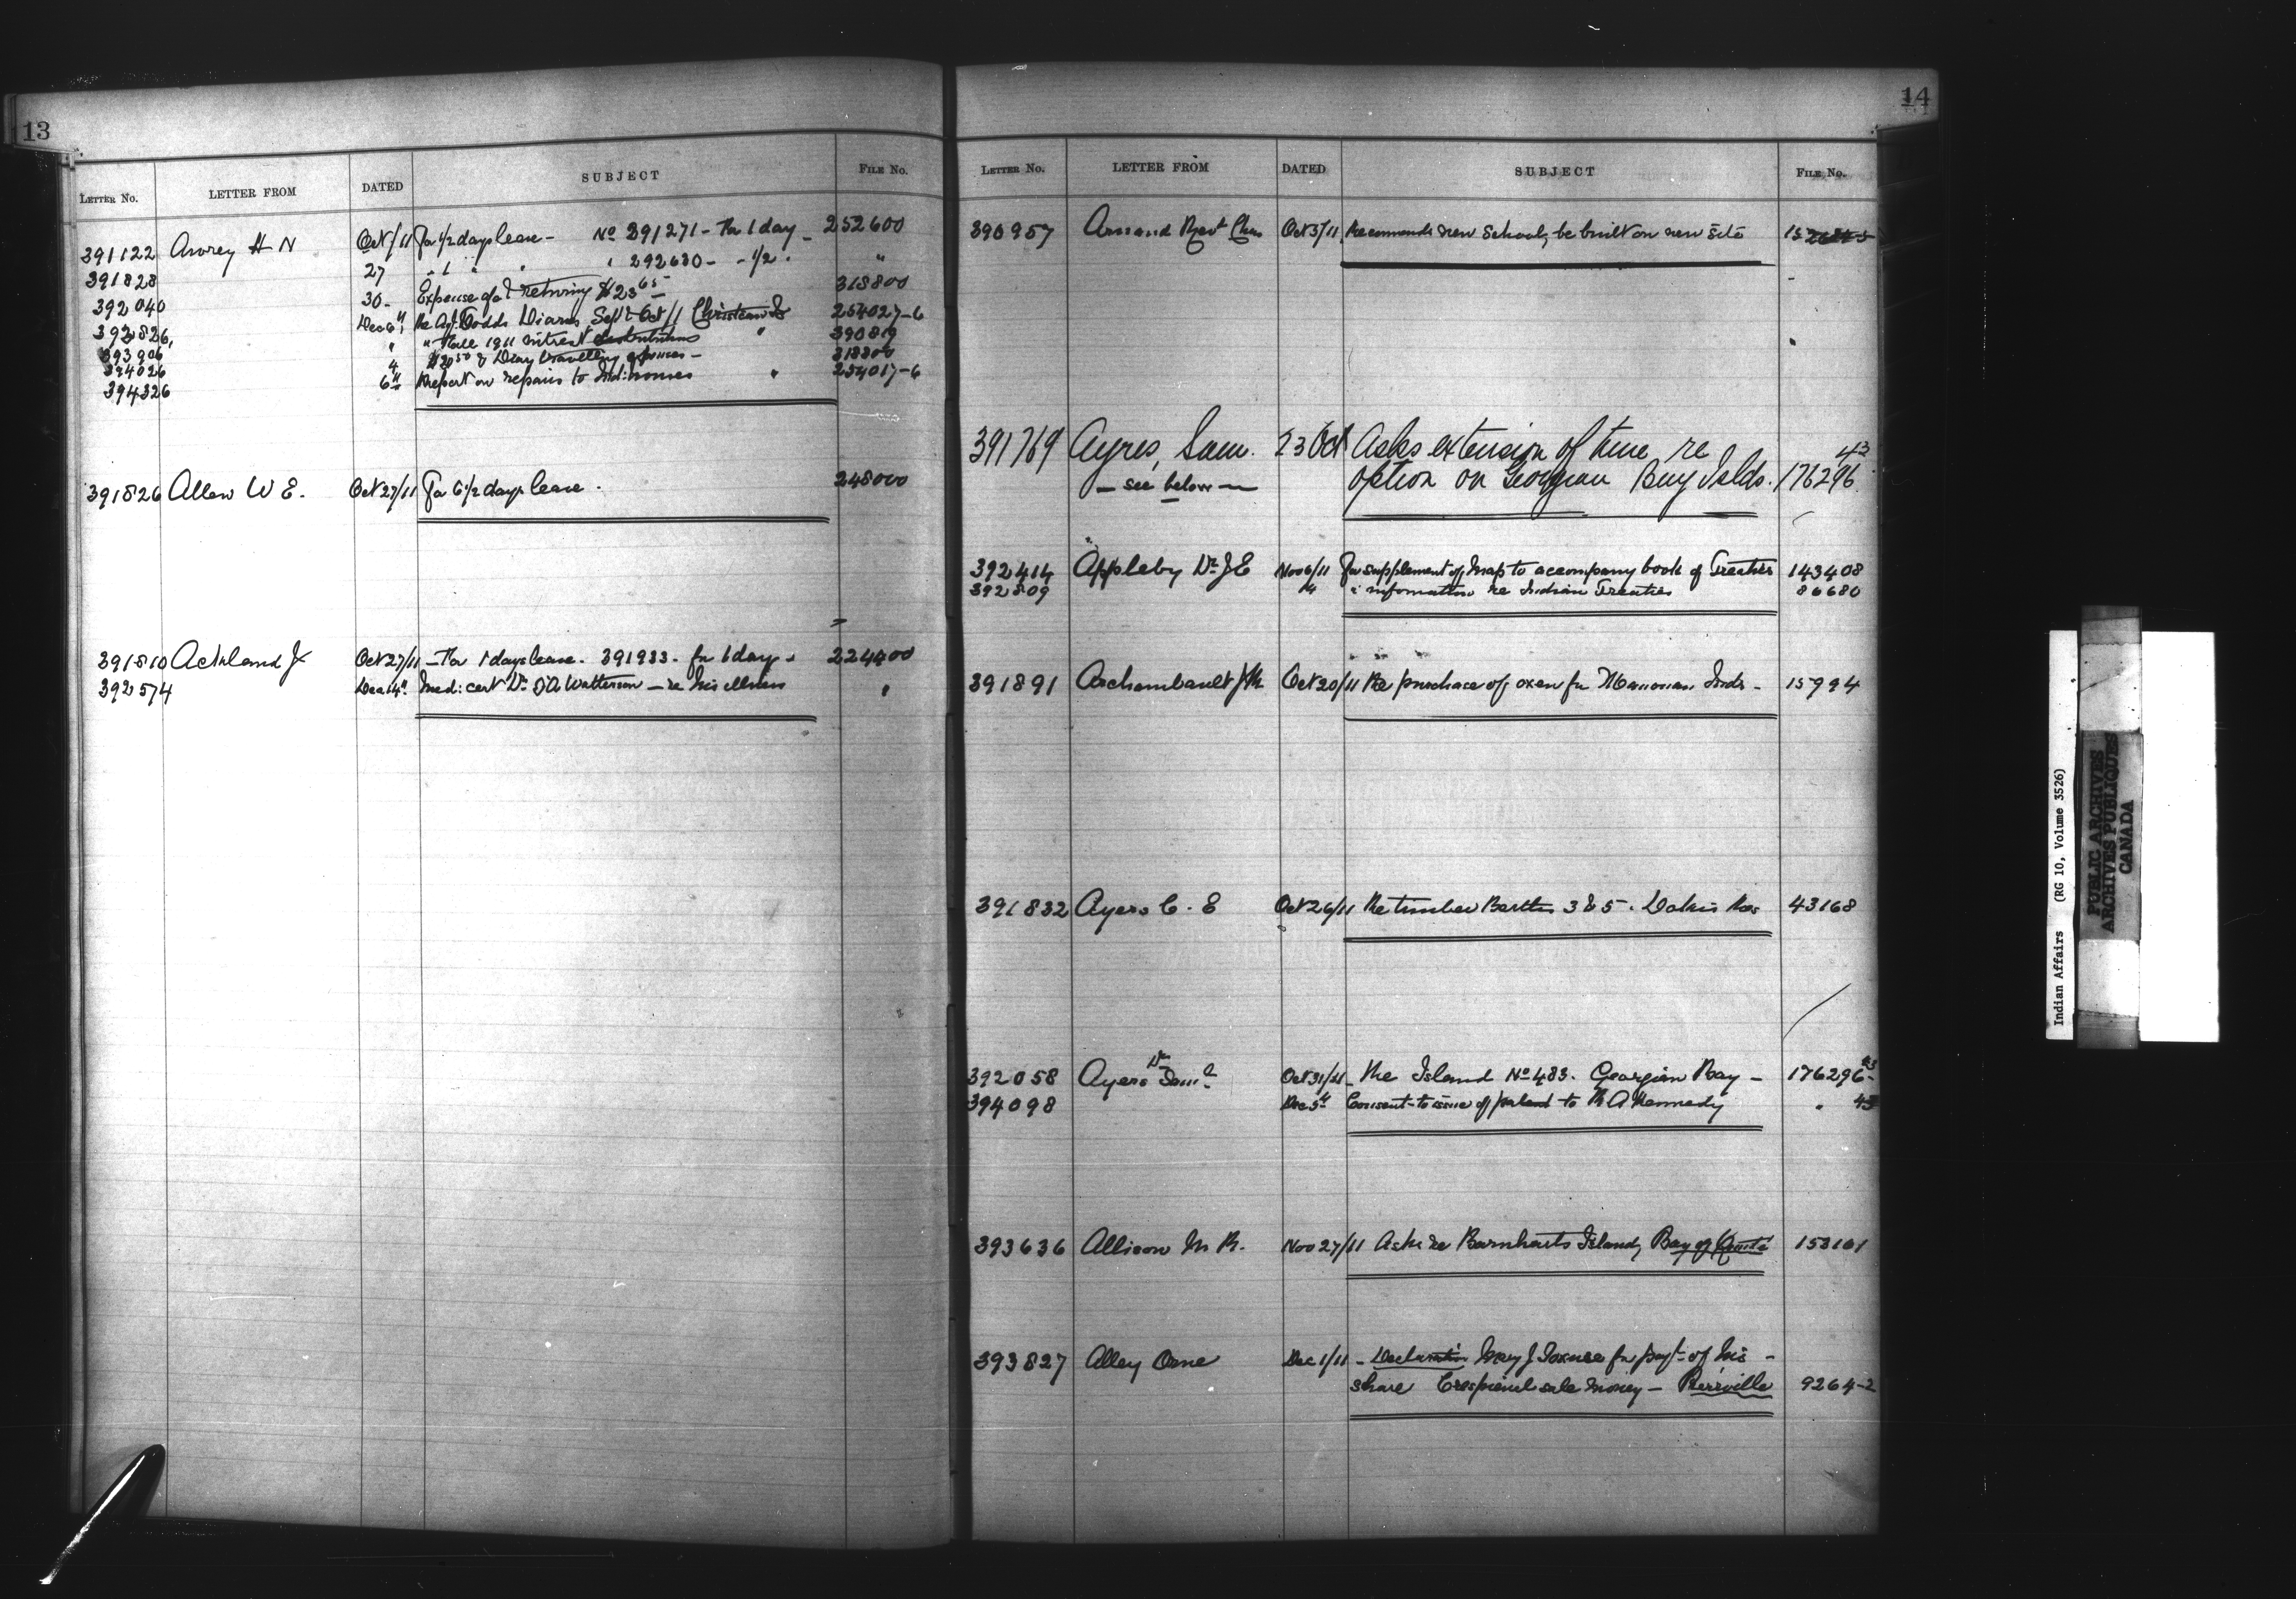 13
LETTER No. LETTER FROM DATED SUBJECT FILE No.
391122 Awrey H N Oct /11 For 1/2 days leave - No 391271 - For 1 day - 252600
391828 27 " 1 " " " 292630 - - 1/2 " "
392040 30 - Expense of returning $23 65 318800
392826 Dec 6th Re A.J. Dodds Diaries Sept & Oct/11 Christian Is 254027-6
393906 " " Fall 1911 Interest distributions " 390819
394026 4 $20 50 & Diary travelling expenses - 318800
394326 6th Report on repairs to Ind: houses " 254017-6
391826 Allan W E. Oct 27/11 For 6 1/2 days leave. 248000
391810 Ackland J Oct 27/11 - For 1 days leave. 391933 - for 1 day - 224400
392574 Dec 14th Med: cert Dr J A Watterson - re his illness "
14
LETTER No. LETTER FROM DATED SUBJECT FILE No.
390957 Arnaud Revt Chas Oct 3/11 Recommends new School, be built on new site
391769 Ayres, Sam. 23 Oct Asks extension of time re 43
- see below - option on Georgian Bay Islds. 176296
392414 Appleby Dr J E Nov 6/11 For supplement of Map to accompany book of Treaties 143408
392809 14 " information re Indian Treaties 86680
391891 Archambault J M Oct 20/11 Re purchase of oxen for Manouan Inds - 15994
391832 Ayers C. E Oct 26/11 Re timber Berths 3 & 5. Dokis Res 43168
392058 Ayers Dr Saml Oct 31/11 - Re Island No 483. Georgian Bay - 176296 43
394098 Dec 5th Consent to issue of patent to R A Kennedy " 43
393636 Allison M R. Nov 27/11 Asks re Barnharts Island, Bay of Quinté 153101
393827 Alley Orne Dec 1/11 - Declaration Mary J for payt of his -
share Crespieul sale money - Pierreville 9264-2
Indian Affairs (RG 10, Volume 3526)
PUBLIC ARCHIVES
ARCHIVES PUBLIQUES
CANADA